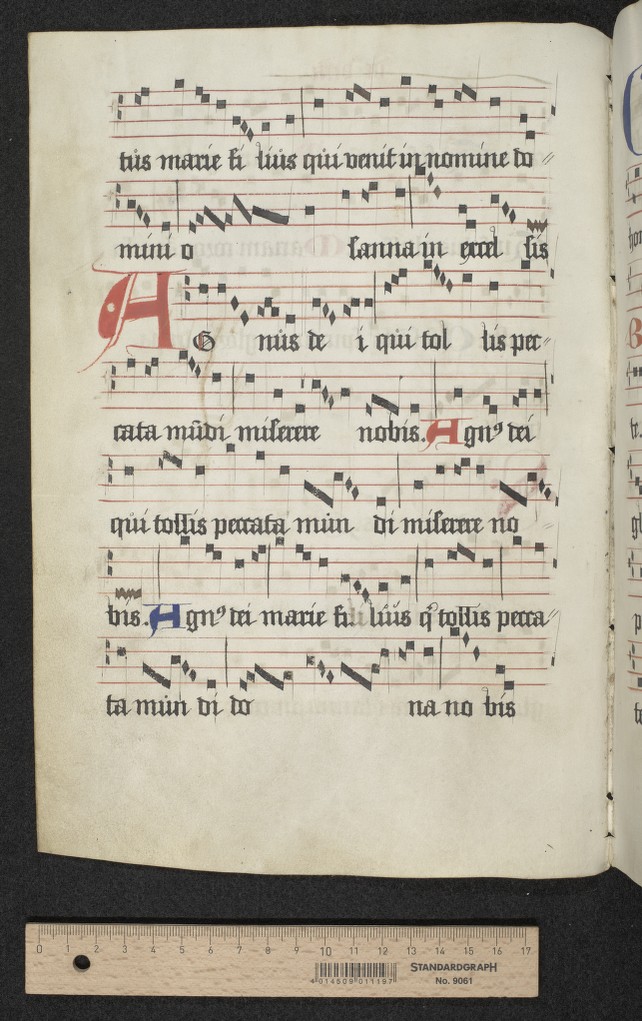 tus marie fi lius qui venit in nomine do
mini o sanna in excel sis
AG nus de i qui tol lis pec
cata mūdi miserere nobis. Agnꝰ dei
qui tollis peccata mun di miserere no
bis. Agnꝰ dei marie fi lius q̇ tollis pecca
ta mun di do na no bis
0 1 2 3 4 5 6 7 8 9 10 11 12 13 14 15 16 17
4 014509 011197
STANDARDGRAPH
No. 9061